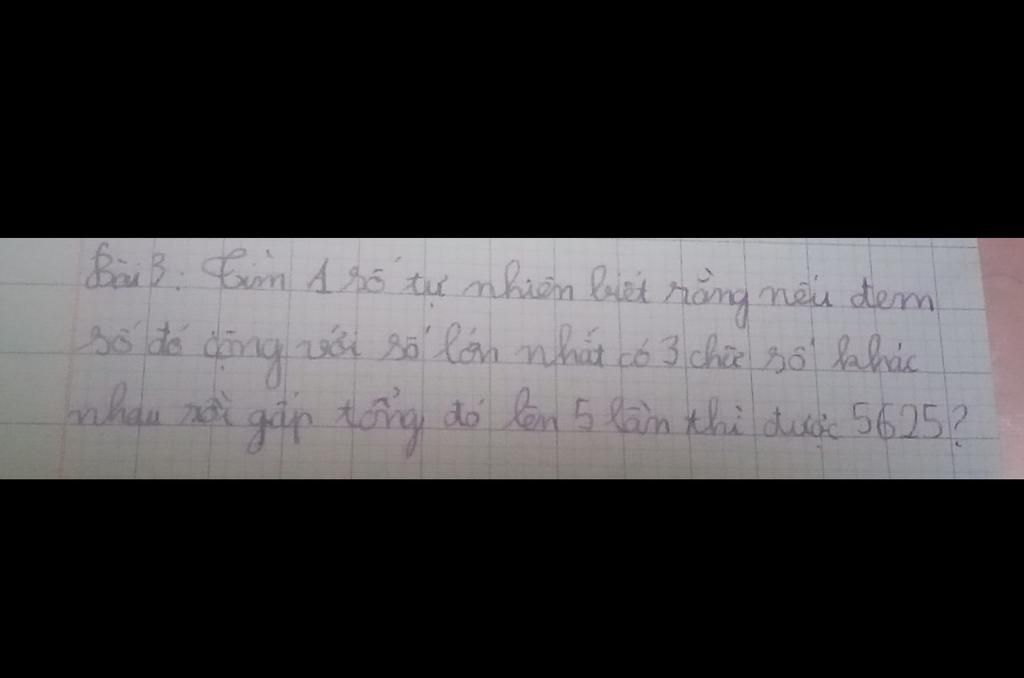 Bài 3. Tìm 1 số tự nhiên biết rằng nếu đem
số đó cộng với số lớn nhất có 3 chữ số khác
nhau rồi gấp tổng đó lên 5 lần thì được 5625?